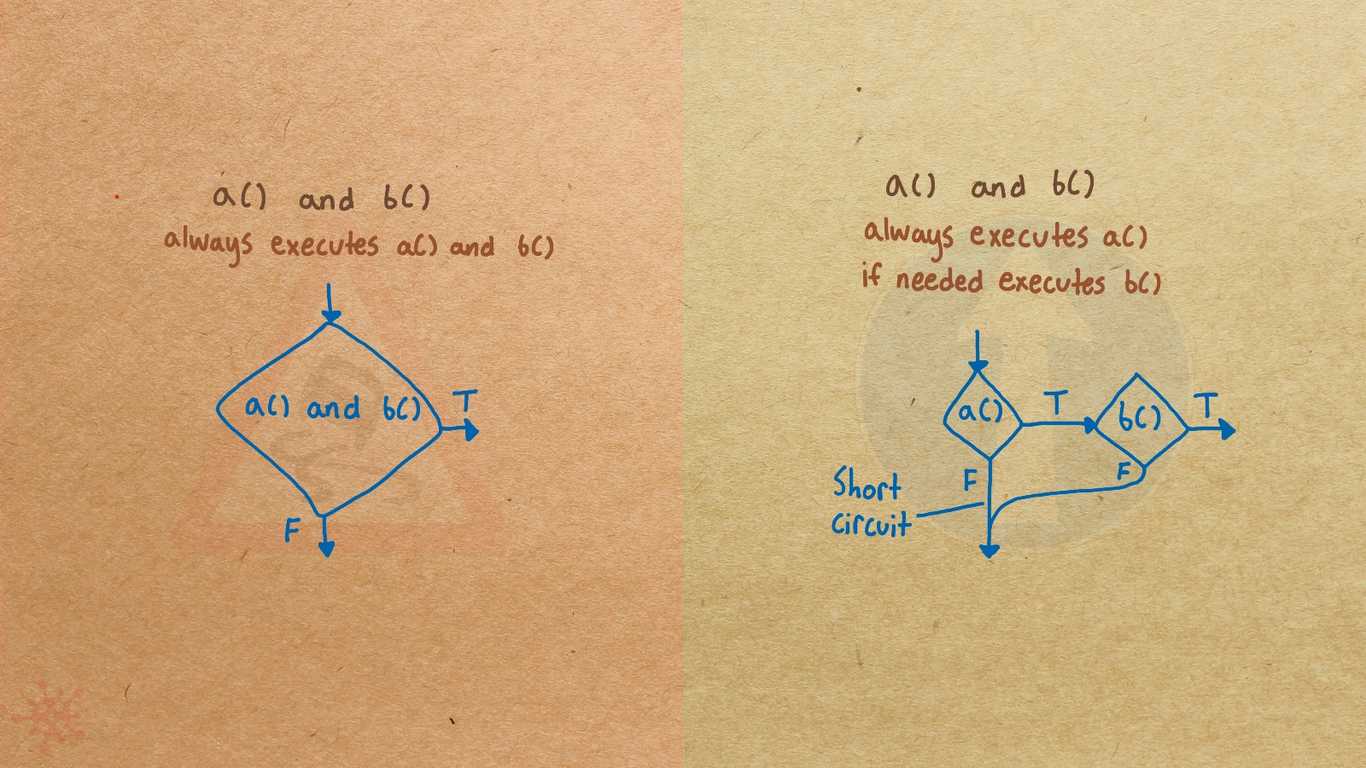 a() and b()
always executes a() and b()
a() and b()
T
F
a() and b()
always executes a()
if needed executes b()
a()
T
b()
T
F
F
Short
circuit